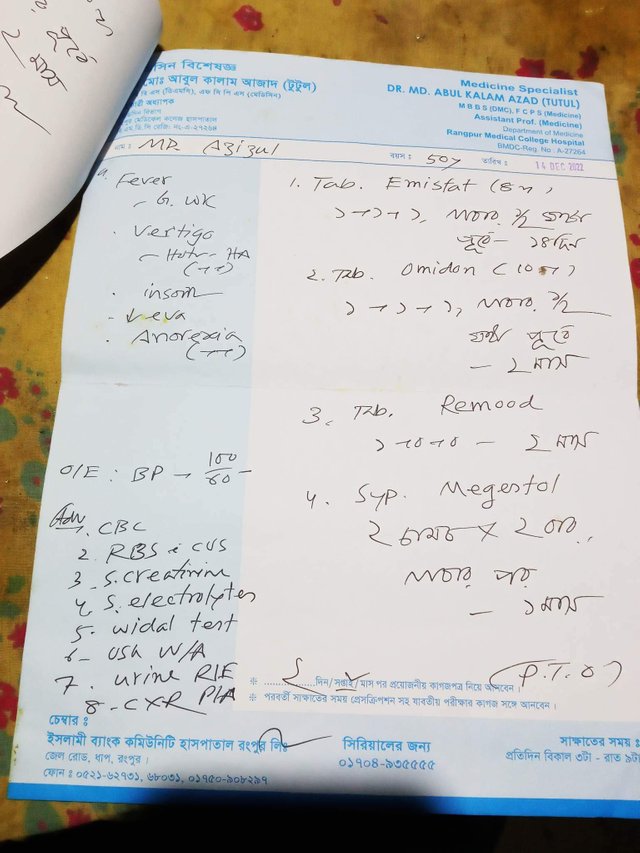 সিন বিশেষজ্ঞ
মোঃ আবুল কালাম আজাদ (টুটুল)
বি এস (ডিএমসি), এফ সি পি এস (মেডিসিন)
কারী অধ্যাপক
মেডিসিন বিভাগ
মেডিকেল কলেজ হাসপাতাল
Medicine Specialist
DR. MD. ABUL KALAM AZAD (TUTUL)
M B B S (DMC), F C P S (Medicine)
Assistant Prof. (Medicine)
Department of Medicine
Rangpur Medical College Hospital
BMDC-Reg. No : A-27264
নাম : MR Azizul বয়স : 50y তারিখ : 14 DEC 2022
Fever
Vertigo
HA
(++)
insom
Anorexia
(++)
O/E : BP → 100/60
Adv
1. CBC
2. RBS c CUS
3. S. creatinine
4. S. electrolytes
5. widal test
6. USG W/A
7. urine R/E
8. CXR P/A
1. Tab. Emistat (8
১+১+১, খাবার ১/২ ঘন্টা
পূর্বে - ১৪দিন
2. Tab. Omidon (10
১+১+১, খাবার ১/২
ঘন্টা পূর্বে
- ২ মাস
3. Tab. Remood
১+০+০ - ২ মাস
4. Syp. Megestol
২ চামচ × ২ বার,
খাবার পর
- ১ মাস
(P.T.O)
※ ২ দিন/সপ্তাহ/মাস পর প্রয়োজনীয় কাগজপত্র নিয়ে আসবেন।
※ পরবর্তী সাক্ষাতের সময় প্রেসক্রিপশন সহ যাবতীয় পরীক্ষার কাগজ সঙ্গে আনবেন।
চেম্বার :
ইসলামী ব্যাংক কমিউনিটি হাসপাতাল রংপুর লিঃ
জেল রোড, ধাপ, রংপুর।
ফোন : ০৫২১-৬২৭৩১, ৬৮০৩১, ০১৭৫০-৯০৮২৯৭
সিরিয়ালের জন্য
০১৭০৪-৯৩৫৫৫৫
সাক্ষাতের সময় :
প্রতিদিন বিকাল ৩টা - রাত ৯টা